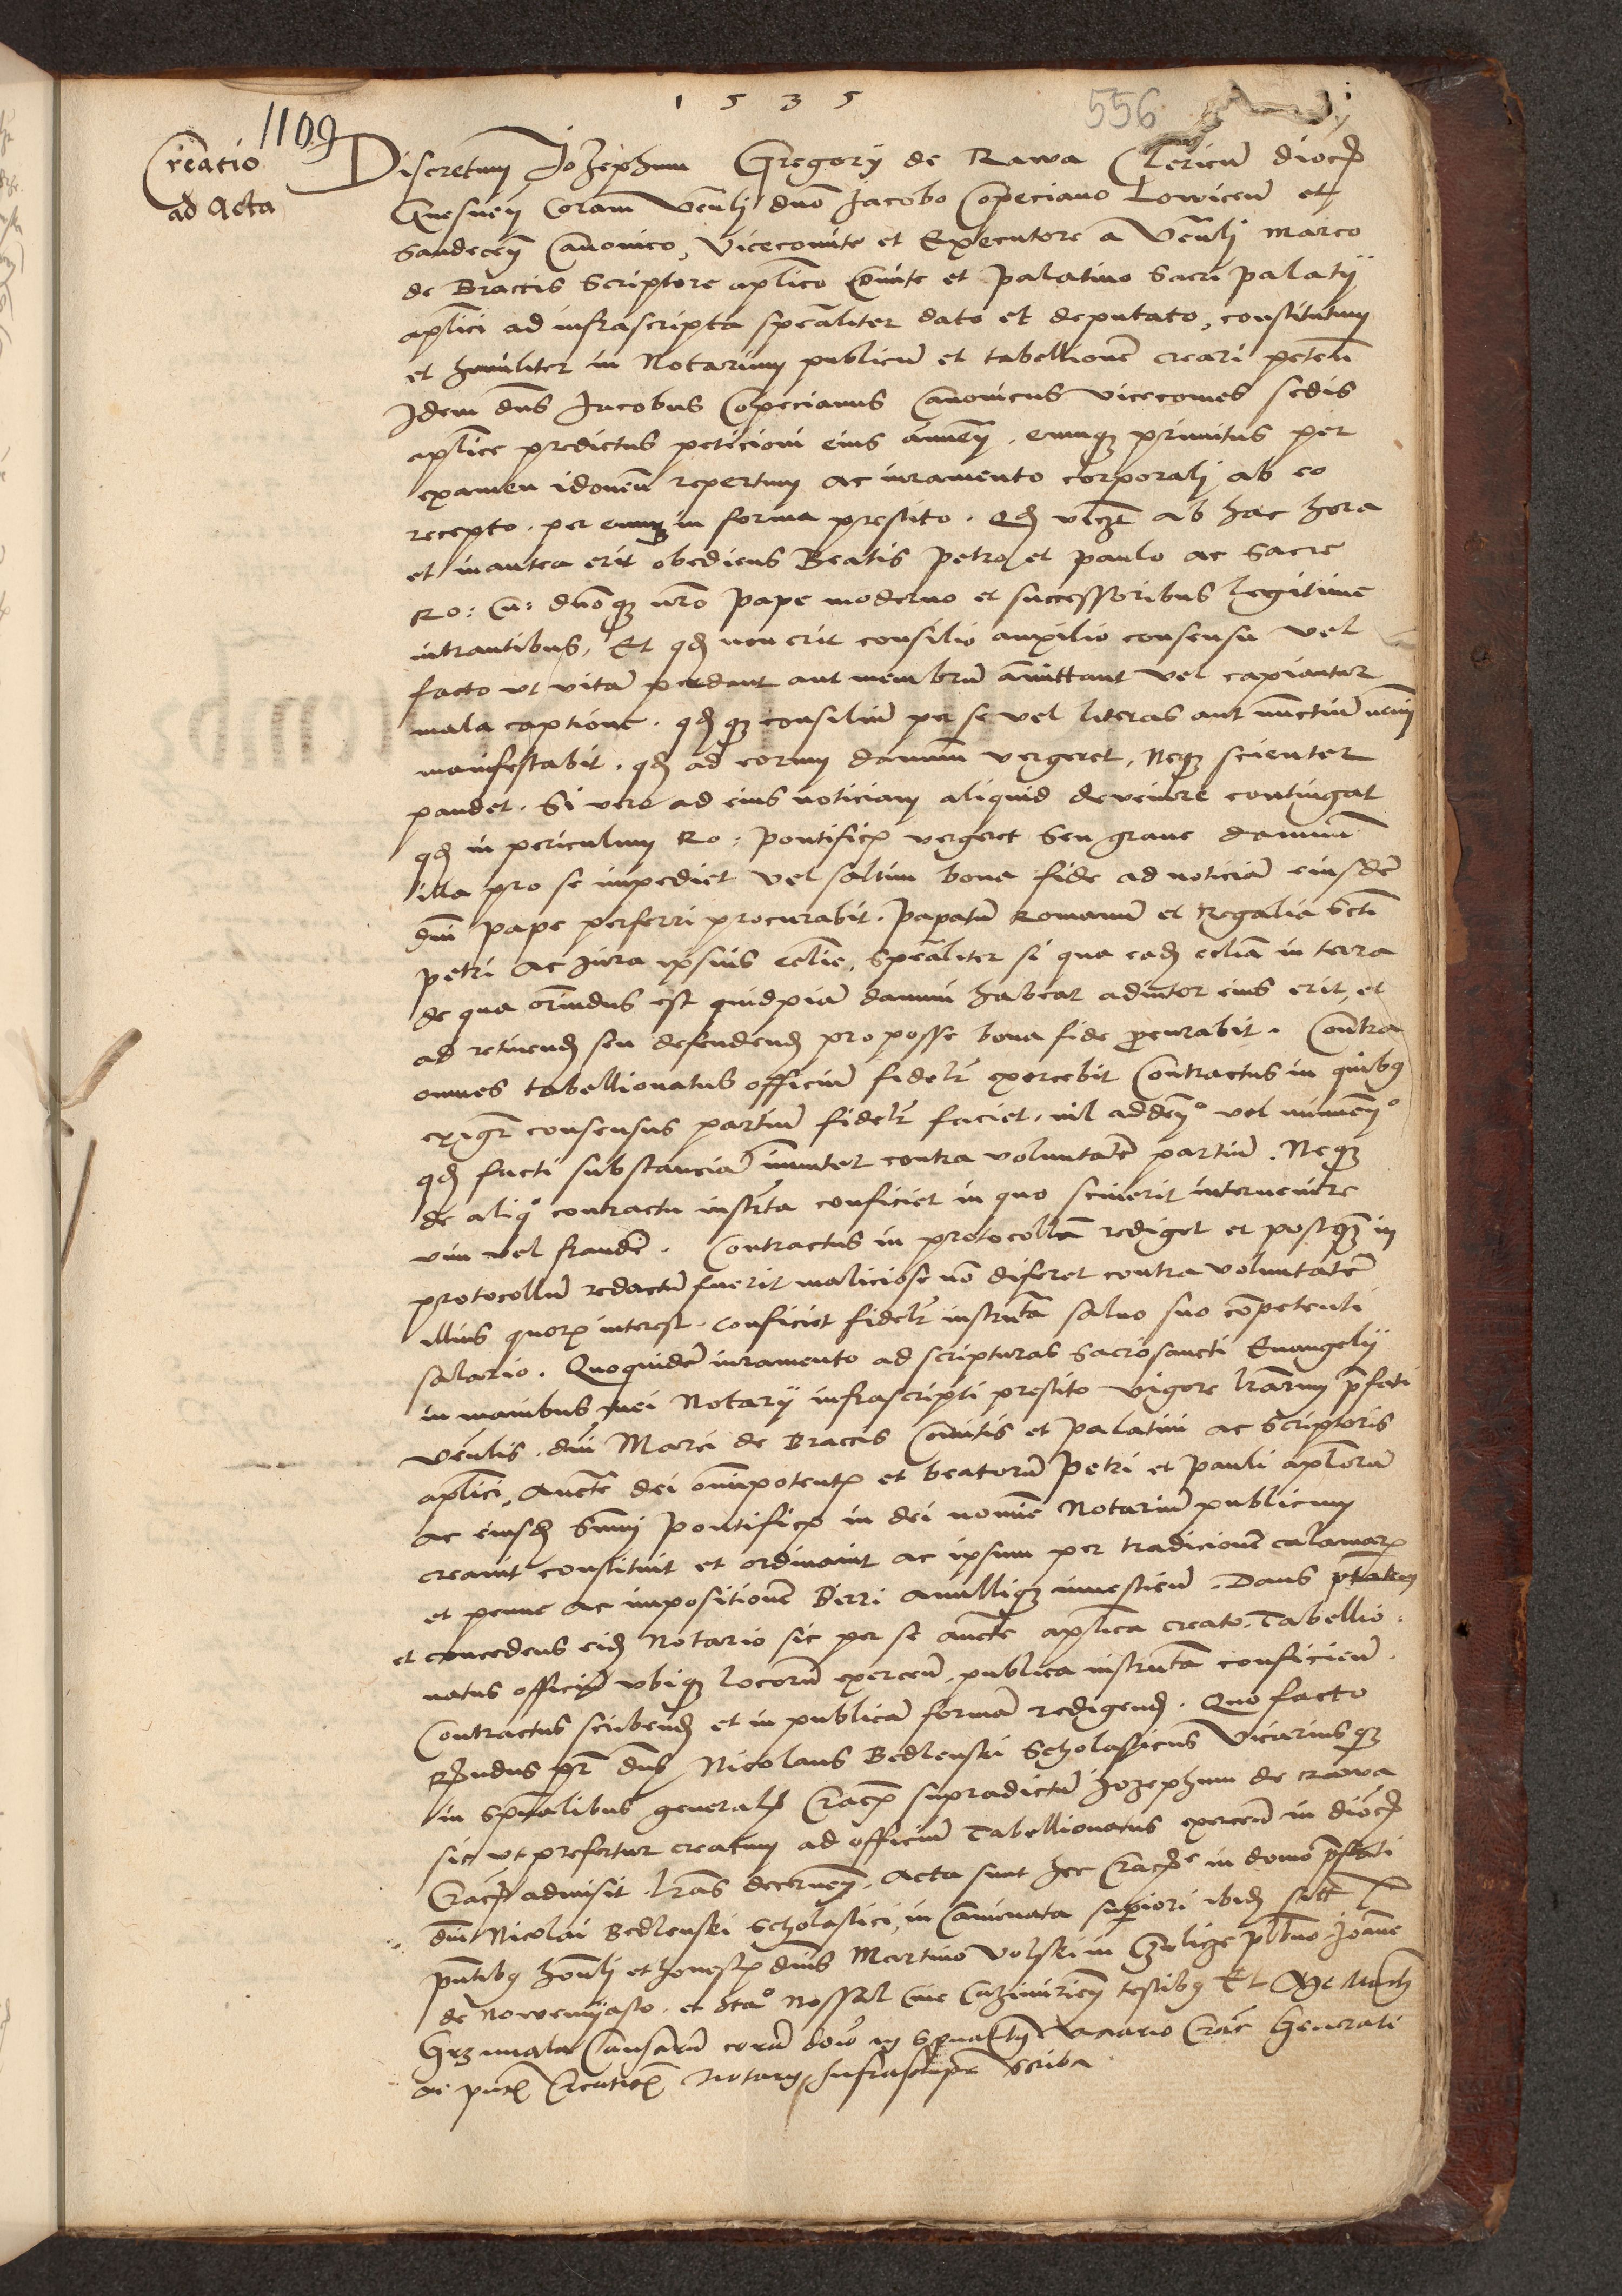 1535
556
1109
Creatio
ad Acta
Discretum Jozephum Gregorij de Rawa Clericũ dioc
Gnesneñ Coram Venlj dno Jacobo Copeciano Lowiceñ et
Sandeceñ Canonico, Vicecomite et Executore a Venlj Marco
de Braccis Scriptore aplico Comite et Palatino Sacri palatij
aplici ad infrascripta spealiter dato et deputato, constitutum
et humiliter in Notarium publicũ et tabellionẽ creari peteñ
Idem dns Jacobus Copecianus Canonicus vicecomes sedis
aplice predictus peticioni eius anueñ, eumq primitus per
examen idoneũ repertum ac iuramento corporalj ab eo
recepto, per eumq in forma prestito. Qd vlzt ab hac hora
et inantea erit obediens Beatis Petro et paulo ac Sacre
Ro: E: dnoq nro Pape moderno et successoribus legitime
intrantibus, Et qd non erit consilio auxilio consensu vel
facto vt vitã perdant aut membrũ amittant vel capiantur
mala captione. qd q consiliũ per se vel literas aut nunctiũ nemi
manifestabit. qd ad eorum damnum vergeret, Neq scienter
pandet. Si vero ad eius noticiam aliquid devenire contingat
qd in periculum Ro: pontific vergeret seu graue damnũ
illa pro se impediet vel saltim bona fide ad noticiã eiusdẽ
dni pape perferri procurabit. Papatũ Romanũ et Regalia Scti
Petri ac Jura ipsius eclie, spealiter si qua ead eclia in terra
de qua oriundus est quidpiã damni habeat adiutor eius erit, et
ad retinend seu defendend pro posse bona fide procurabit. Contra
omnes tabellionatus officiũ fidelr exercebit Contractus in quibus
exigr consensus partiũ fidelr faciet, nil addeñ vel minueñ
qd facti substanciã immutet contra voluntatẽ partiũ. Neq
de aliq contractu instrta conficiet in quo sciuerit interuenire
vim vel fraudẽ. Contractus in protocollũ rediget et postq in
protocollũ redactũ fuerit maliciose nõ diferet contra voluntatẽ
illius quor interest. conficiet fidelr instrta saluo suo cõpetenti
salario. Quoquidẽ iuramento ad scripturas Sacrosancti Euangelij
in manibus mei Notarij infrascripti prestito vigore lrarum pfati
venlis. dni Marci de Braccis Comitis et Palatini ac Scriptoris
aplici, Aucte dei omipotent et beatorũ Petri et Pauli aplorũ
ac eiusd Smi Pontific in dei nomie Notariũ publicum
creauit constituit et ordinauit ac ipsum per tradicionẽ calamar
et penne ac impositionẽ Birri anulliq inuestieñ. Dans ptatem
et concedens eid Notario sic per se aucte aplica creato. Tabellio-
natus officiũ vbiq locorũ exerceñ. publica instrta conficieñ.
Contractus scribend et in publicã formã redigend. Quo facto
Rndus pr dns Nicolaus Bedlenski Scholasticus Vicariusq
in spualibus general Crac supradictũ Jozephum de Rawa
sic vt prefertur creatum ad officiũ Tabellionatus exerceñ in dioc
Crac admisit. lras decerneñ. Acta sunt hec Crac in domo pfati
dni Nicolai Bedlenski Scholastici, in Caminata supiori ibid sitt
pntibus honlj et honest dnis Martino Volski in plbno Joãne
de Nowemyasto. et Sta Nossal Cazimirieñ testibus Et Me
Grzimala Causarũ corã Vicario Crac Generali
ac pnt Creation Notario Infrascripte scriba